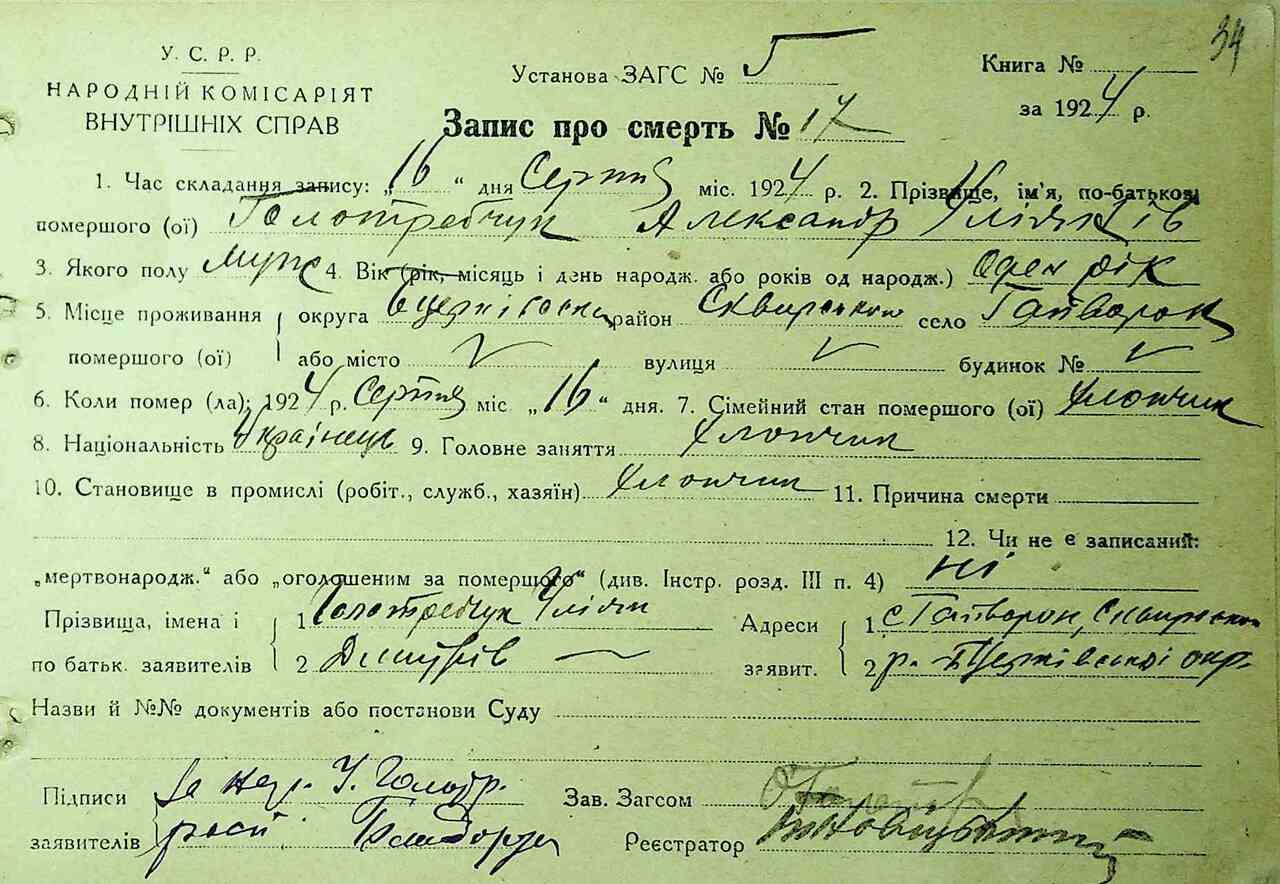 34
У. С. Р. Р.
НАРОДНІЙ КОМІСАРІЯТ
ВНУТРІШНІХ СПРАВ
Установа ЗАГС № 5
Книга №
за 1924 р.
Запис про смерть № 17
1. Час складання запису: „16“ дня Серпня міс. 1924 р. 2. Прізвище, ім'я, по-батькові
помершого (ої) Голотребчук Александр Улія
3. Якого полу муж 4. Вік (рік, місяць і день народж. або років од народж.) Оден рік
5. Місце проживання округа район Сквирськ село Гайворон
помершого (ої) або місто V вулиця V будинок № V
6. Коли помер (ла): 1924 р. Серпня міс „16“ дня. 7. Сімейний стан помершого (ої) Хлопчик
8. Національність Українець 9. Головне заняття Хлопчик
10. Становище в промислі (робіт., служб., хазяїн) Хлопчик 11. Причина смерти
12. Чи не є записаний:
„мертвонародж.“ або „оголошеним за помершого“ (див. Інстр. розд. III п. 4) ні
Прізвища, імена і 1 Голотребчук Уліян Адреси 1 с Гайворон,
по батьк. заявителів 2 Дмитрів — заявит. 2 р. Б Церківської окр.
Назви й №№ документів або постанови Суду
Підписи за нег. У. Голотр. Зав. Загсом
заявителів росп Реєстратор